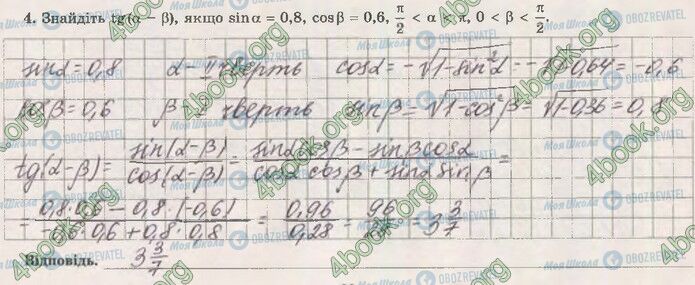 4. Знайдіть tg(α − β), якщо sin α = 0,8, cos β = 0,6, π/2 < α < π, 0 < β < π/2.
sinα = 0,8 α - II чверть cosα = -√(1-sin²α) = -√(1-0,64) = -0,6
cosβ = 0,6 β - I чверть sinβ = √(1-cos²β) = √(1-0,36) = 0,8
tg(α-β) = sin(α-β)/cos(α-β) = (sinα cosβ - sinβ cosα)/(cosα cosβ + sinα sinβ) =
= (0,8·0,6 - 0,8·(-0,6))/(-0,6·0,6 + 0,8·0,8) = 0,96/0,28 = 96/28 = 3 3/7
Відповідь. 3 3/7